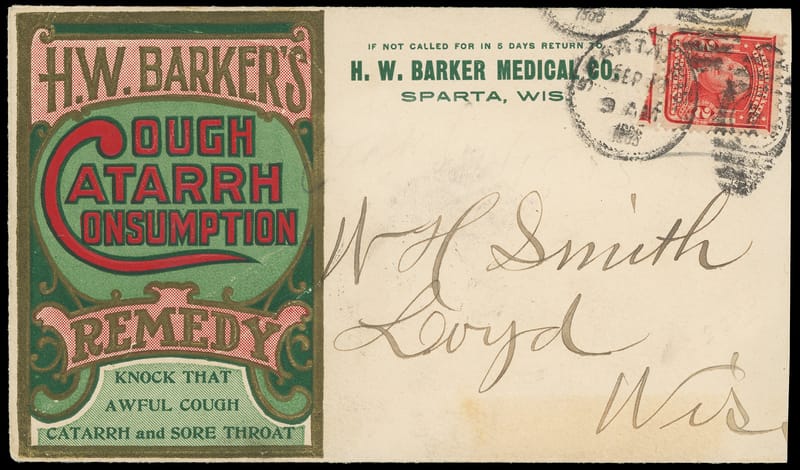 H.W. BARKER'S
COUGH
CATARRH
CONSUMPTION
REMEDY
KNOCK THAT
AWFUL COUGH
CATARRH and SORE THROAT
IF NOT CALLED FOR IN 5 DAYS RETURN TO
H. W. BARKER MEDICAL CO.
SPARTA, WIS.
SEP
9 AM
W H Smith
Loyd
Wis